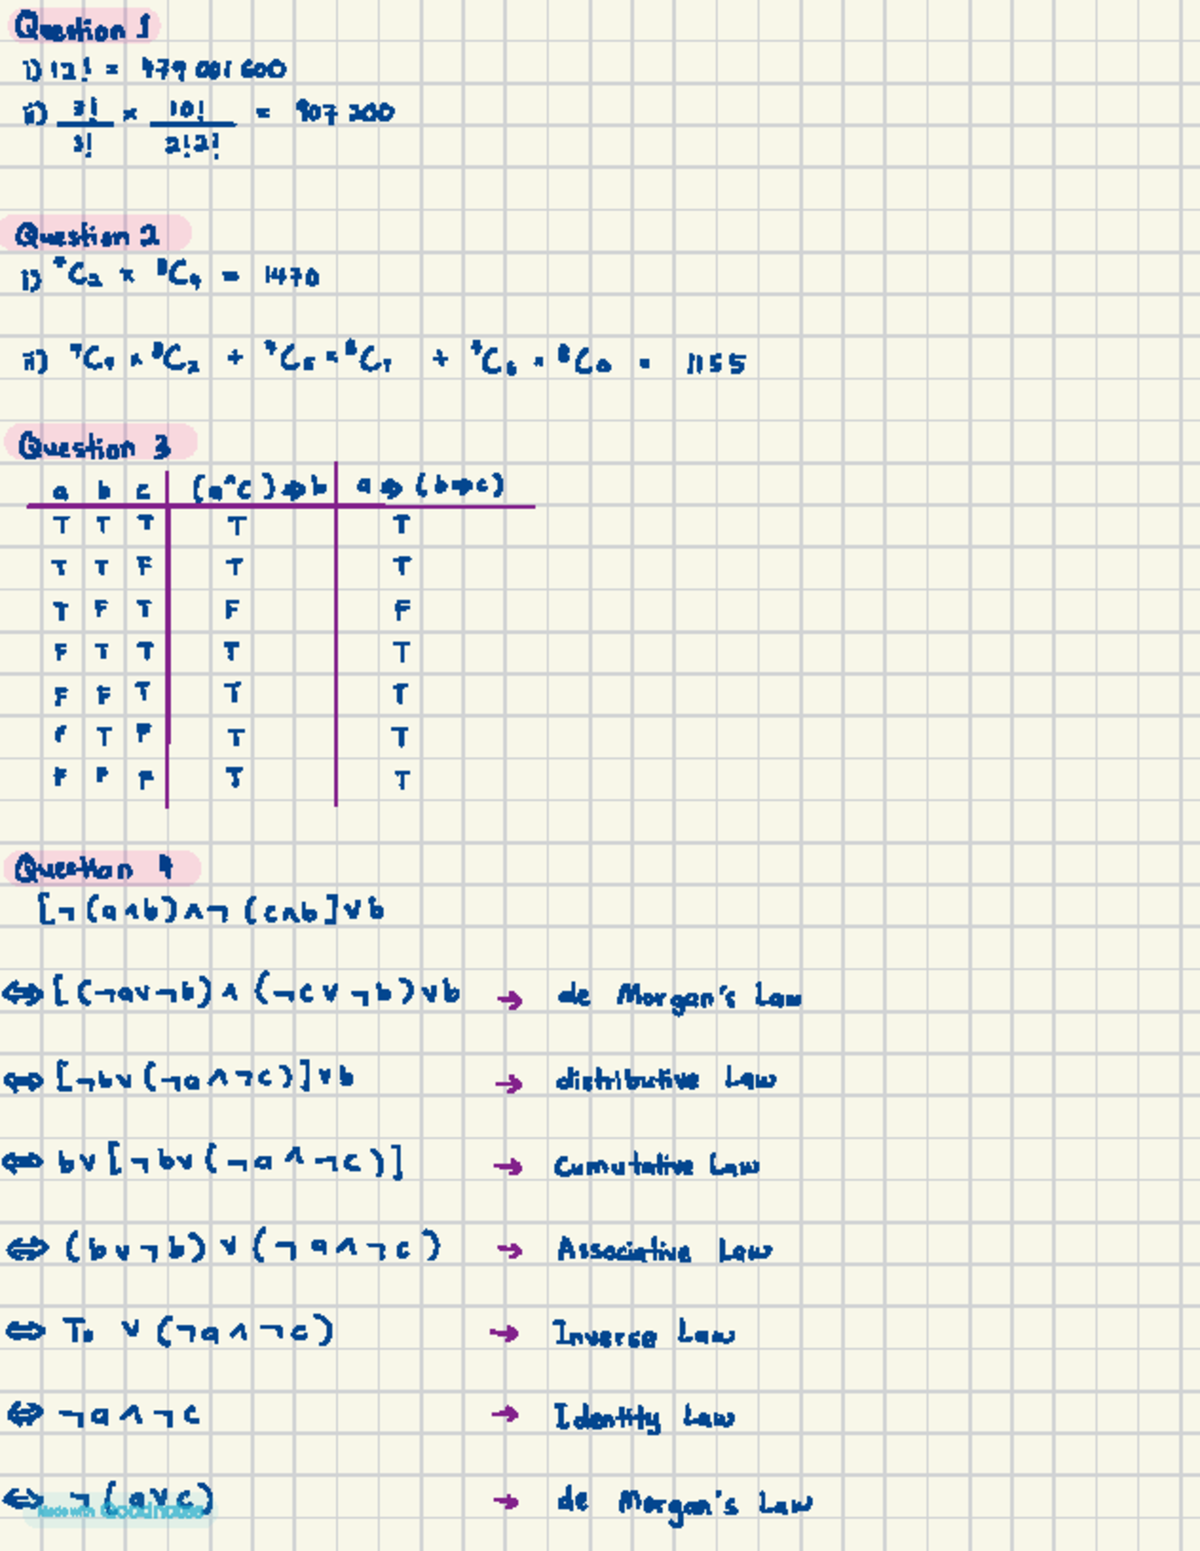 Question 1
i) 12! = 479 001 600
ii) 3!/3! × 10!/2!2! = 907 200
Question 2
i) ⁷C₂ × ⁸C₄ = 1470
ii) ⁷C₄ × ⁸C₂ + ⁷C₅ × ⁸C₁ + ⁷C₆ × ⁸C₀ = 1155
Question 3
a b c (a^c) ⇒ b a ⇒ (b⇒c)
T T T T T
T T F T T
T F T F F
F T T T T
F F T T T
F T F T T
F F F T T
Question 4
[¬(a∧b)∧¬(c∧b]∨b
⇔ [(¬a∨¬b)∧(¬c∨¬b)∨b → de Morgan's Law
⇔ [¬b∨(¬a∧¬c)]∨b → distributive Law
⇔ b∨[¬b∨(¬a∧¬c)] → Cumutative Law
⇔ (b∨¬b)∨(¬a∧¬c) → Associative Law
⇔ T₀ ∨(¬a∧¬c) → Inverse Law
⇔ ¬a∧¬c → Identity Law
⇔ ¬(a∨c) → de Morgan's Law
Made with Goodnotes